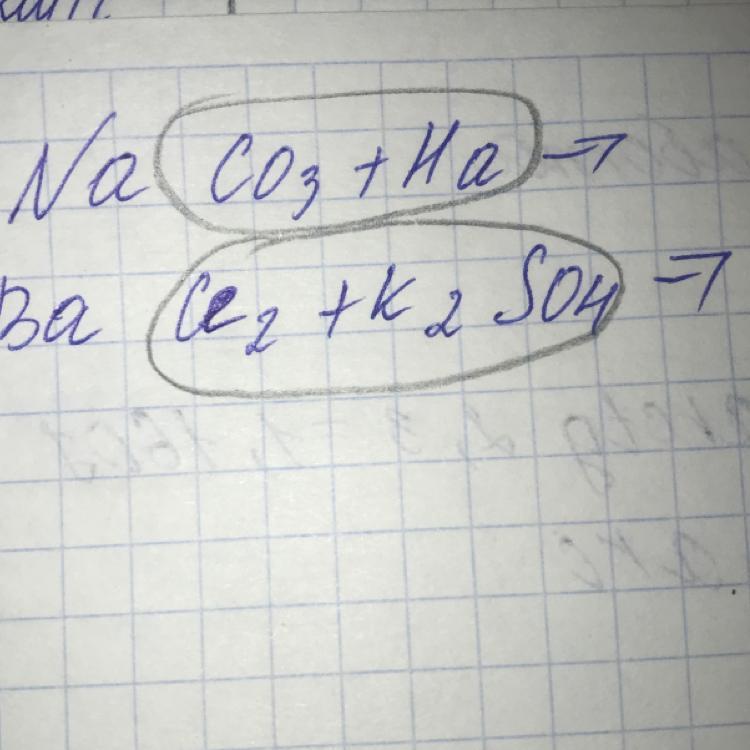 Na CO3 + Ha →
Ba Cl2 + K2 SO4 →